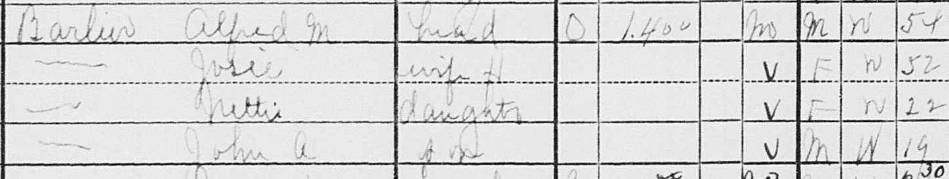 Barlier Alfred M head O 1.400 no M W 54
— Josie wife H V F W 52
— Nettie daughter V F W 22
— John A son V M W 19
30